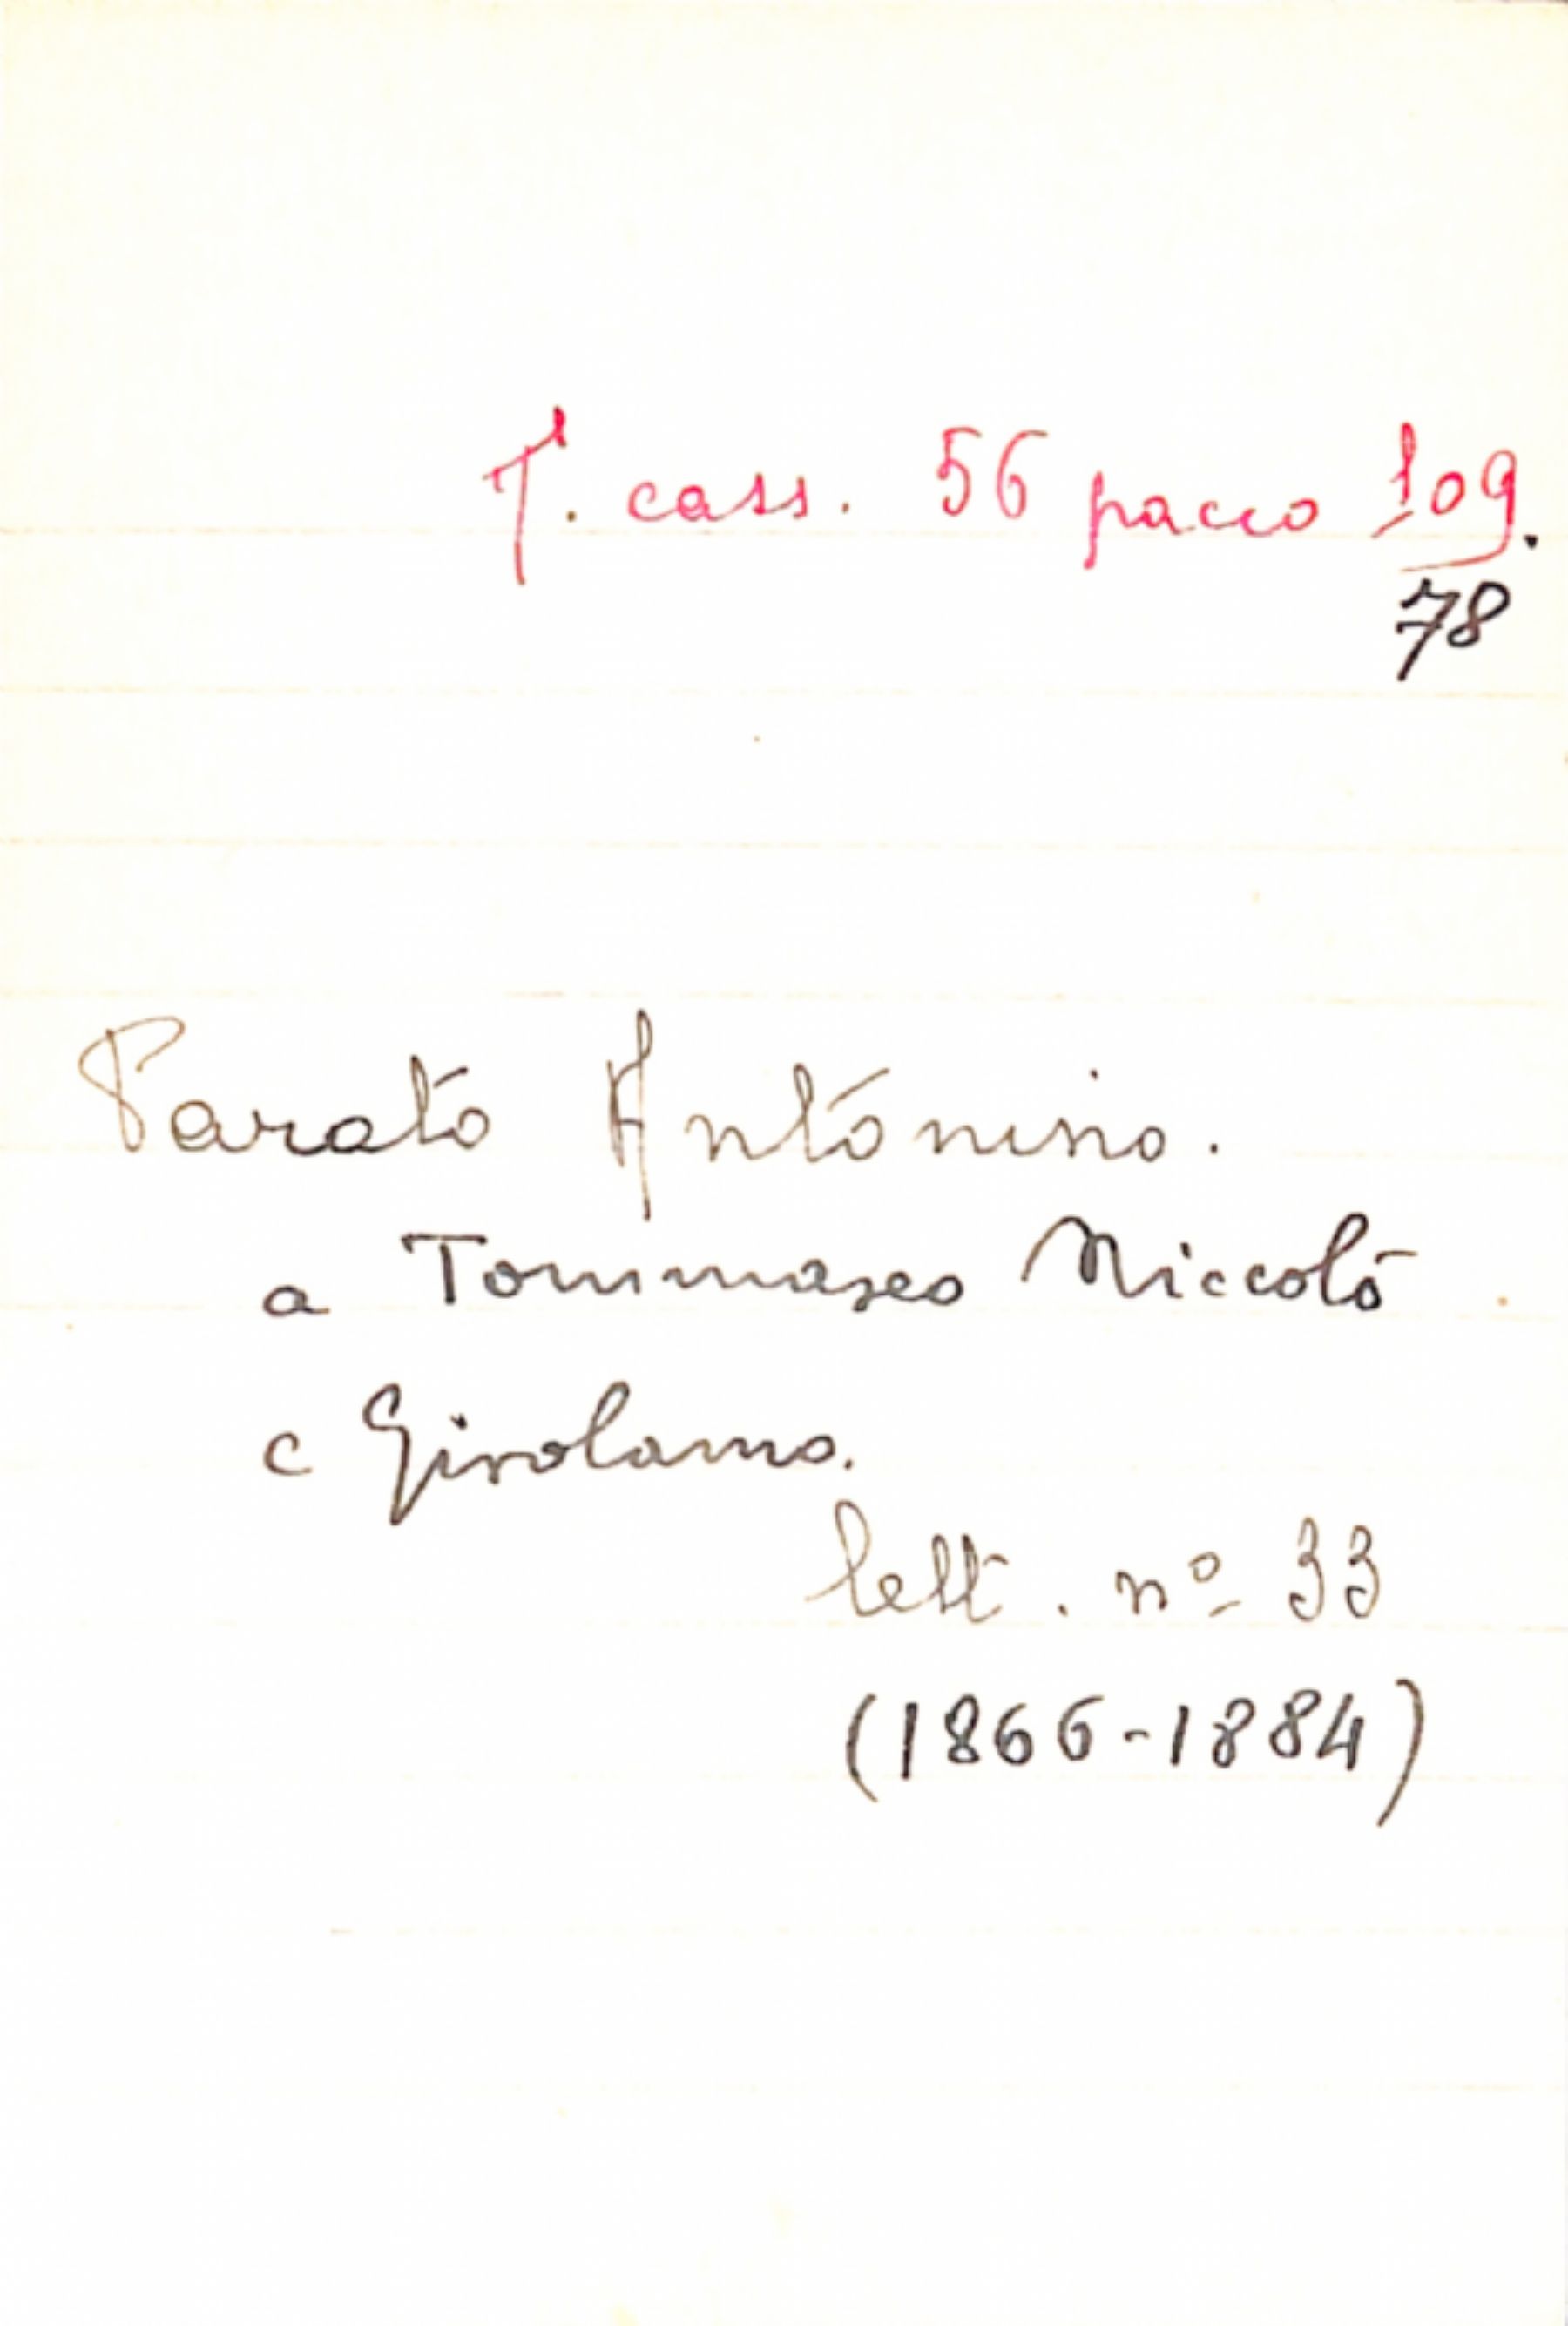 T. cass. 56 pacco 109.
78
Parato Antonino.
a Tommaseo Niccolò
e Girolamo.
lett. nº 33
(1866-1884)